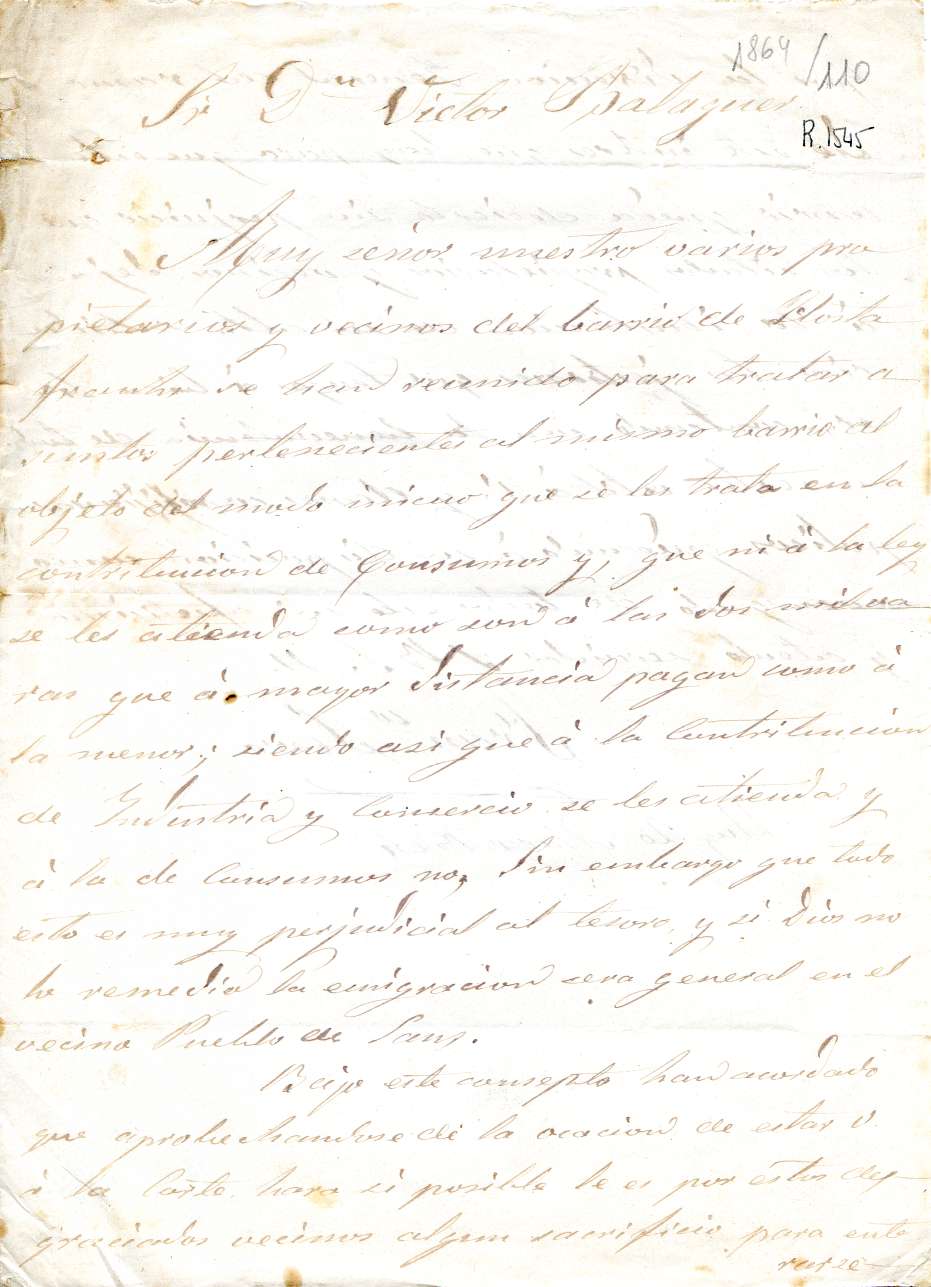 1864/110
Sr Dn Victor Balaguer.
R. 1545
Muy señor nuestro varios pro
pietarios y vecinos del barrio de Hosta
franchs se han reunido para tratar a
suntos pertenecientes al mismo barrio al
objeto del modo inicuo que se les trata en la
contribucion de Consumos y, que ni á la ley
se les atienda como son á las dos mil va
ras que á mayor distancia pagan como á
la menor; siendo asi que á la Contribucion
de Industria y Comercio se les atienda y
á la de Consumos no, Sin embargo que todo
esto es muy perjudicial al tesoro, y si Dios no
lo remedia la emigracion sera general en el
vecino Pueblo de Sans.
Bajo este consepto han acordado
que aprobechandose de la ocacion de estar V.
á la Corte hara si posible le es por estos des
graciados vecinos algun sacrificio para ente
rarse